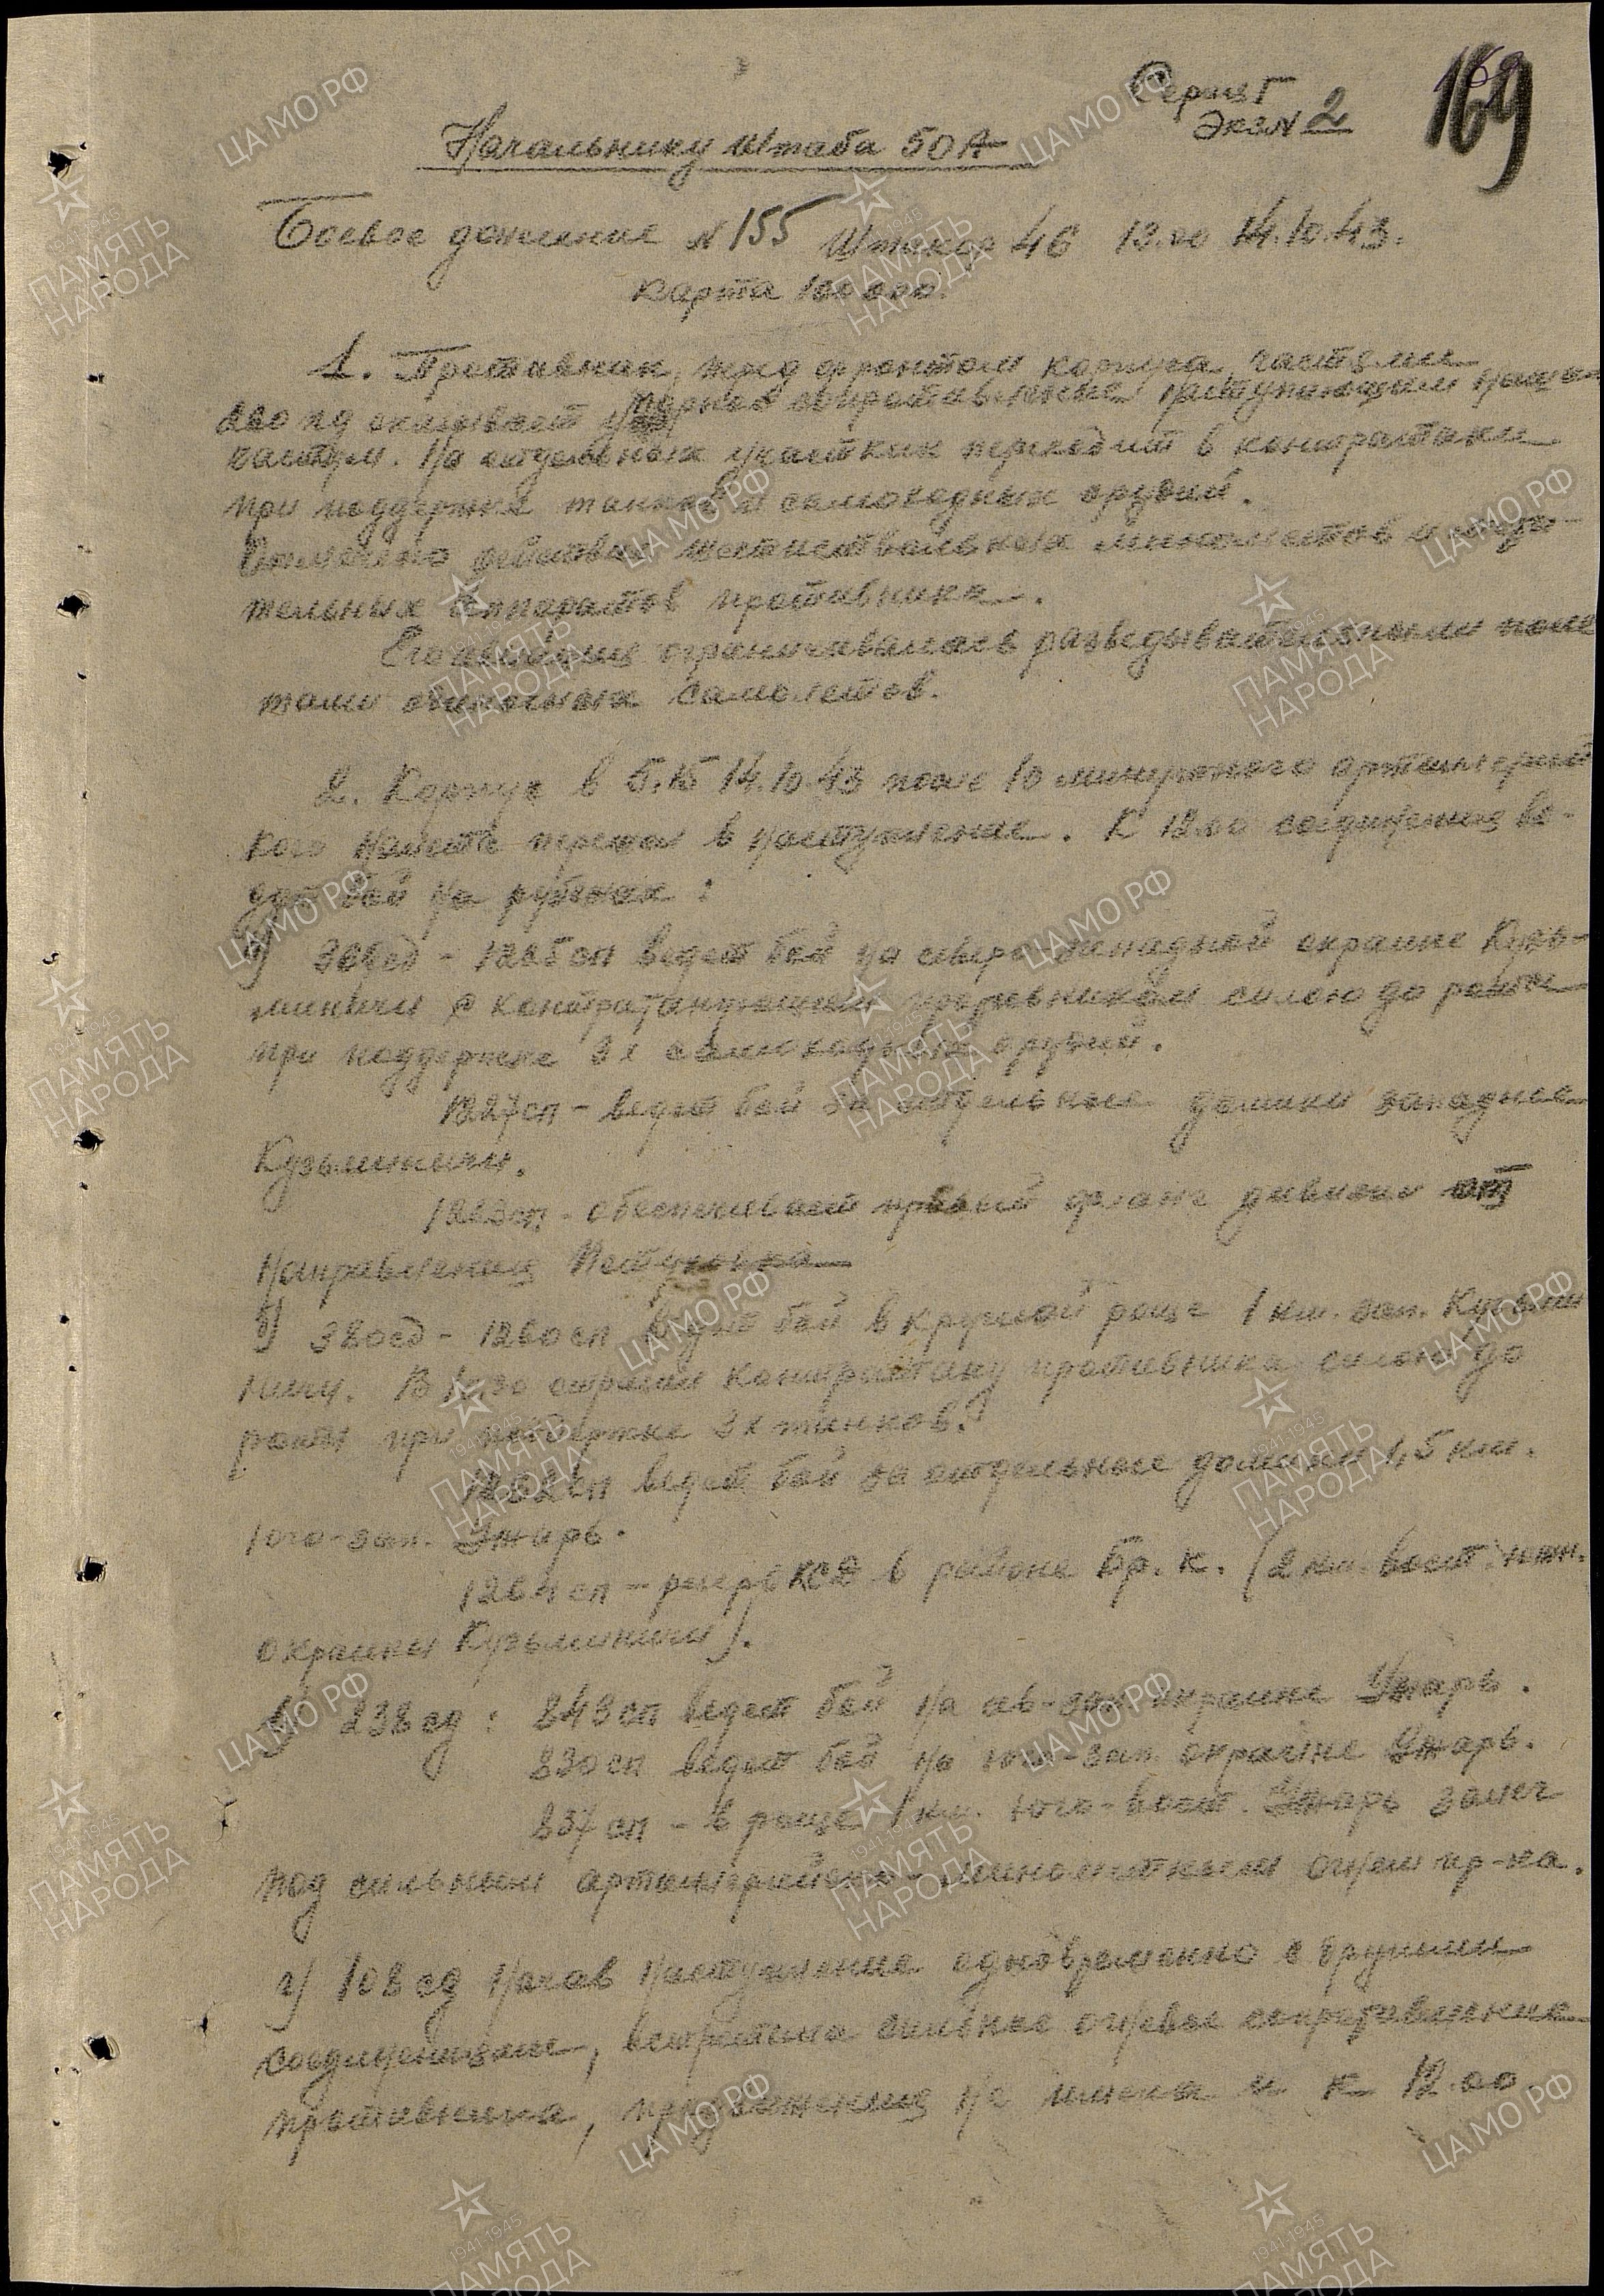 Серия Г
Экз. N 2
169
Начальнику штаба 50А
Боевое донесение N 155 Штакор 46 13.00 14.10.43.
Карта 100 000.
1. Противник, перед фронтом корпуса, частями
пд оказывает упорное сопротивление наступающим нашим
частям. На отдельных участках переходит в контратаки
при поддержке танков и самоходных орудий.
Отмечено действие шестиствольных минометов и
тельных аппаратов противника.
Его авиация ограничивалась разведывательными поле
тами одиночных самолетов.
2. Корпус в 5.15 14.10.43 после 10 минутного артиллерийс
кого налета перешел в наступление. К 12.00 соединения ве-
дут бой на рубежах:
а) сд - 12 сп ведет бой на северо-западной окраине Кузь-
миничи с контратакующим противником силою до роты
при поддержке 3х самоходных орудий.
сп - ведет бой за отдельные домики западнее
Кузьминичи.
сп - обеспечивает правый фланг дивизии от
направления Петуховка
б) 380сд - 1260 сп ведет бой в круглой роще 1 км. зап. Кузьми
ничи. В 10.30 отразил контратаку противника силою до
роты при поддержке 3х танков.
1262 сп ведет бой за отдельные домики 1,5 км.
юго-зап. Ужарь.
1264 сп - резерв КСД в районе бр. к. (2 км. вост. южн.
окраины Кузьминичи).
в) 238 сд: 843 сп ведет бой на св-зап окраине Ужарь.
830 сп ведет бой на юго-зап. окраине Ужарь.
837 сп - в роще 1 км. юго-вост. Ужарь залег
под сильным артиллерийско-минометным огнем пр-ка.
г) 108 сд начав наступление одновременно с другими
соединениями, встретила сильное огневое сопротивление
противника, продвижения не имела и к 12.00
ЦАМО РФ
1941-1945
ПАМЯТЬ
НАРОДА